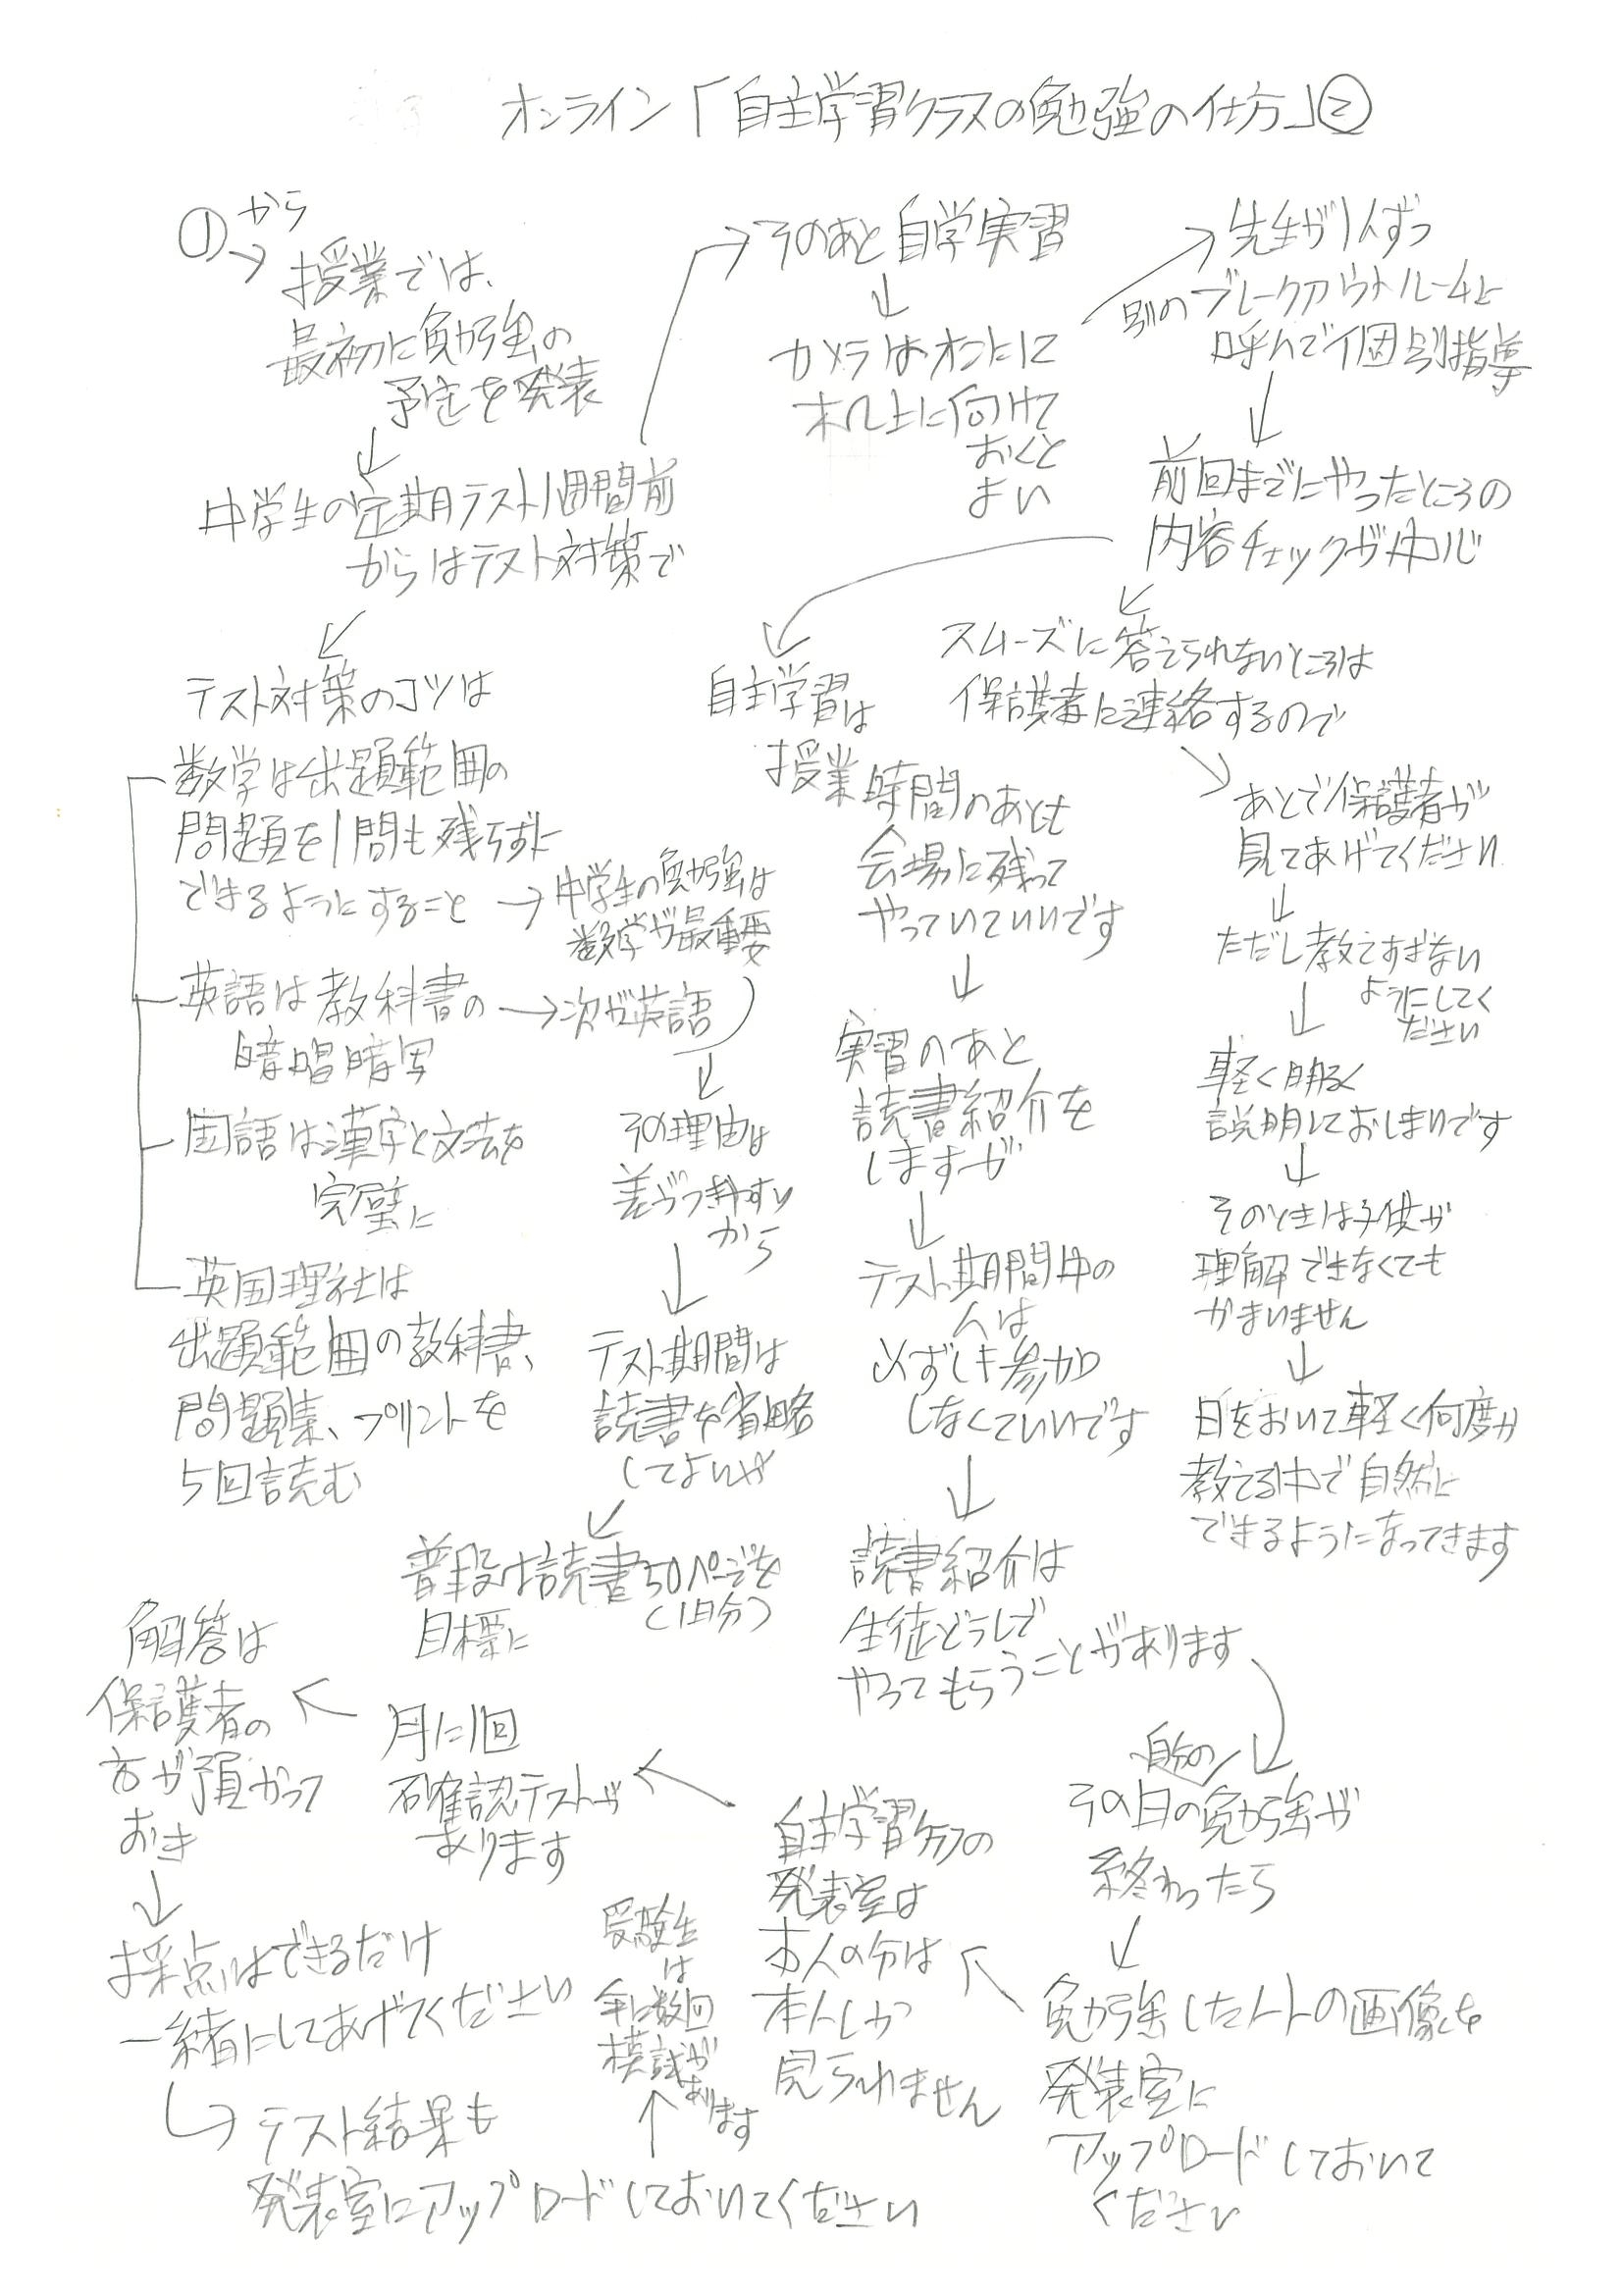 オンライン「自主学習クラスの勉強の仕方」②
①から
→授業では、
最初に勉強の
予定を発表
↓
中学生の定期テスト1週間前
からはテスト対策で
↙
テスト対策のコツは
数学は出題範囲の
問題を1問も残さずに
できるようにすること
→中学生の勉強は
数学が最重要
英語は教科書の
暗唱暗写
→次が英語
国語は漢字と文法を
完璧に
英国理社は
出題範囲の教科書、
問題集、プリントを
5回読む
↓
その理由は
差がつきやすい
から
↓
テスト期間は
読書を省略
してよいが
↙
普段は読書50ページを
(1日分)
目標に
→そのあと自学実習
↓
カメラはオンにして
机上に向けて
おくと
よい
→先生が1人ずつ
別のブレークアウトルームに
呼んで個別指導
↓
前回までにやったところの
内容チェックが中心
↙
スムーズに答えられないところは
保護者に連絡するので
↘
あとで保護者が
見てあげてください
↓
ただし教えすぎない
ようにしてく
ださい
↓
軽く明るく
説明しておしまいです
↓
そのときは子供が
理解できなくても
かまいません
↓
日をおいて軽く何度か
教える中で自然に
できるようになってきます
自主学習は
授業時間のあとも
会場に残って
やっていていいです
↓
実習のあと
読書紹介を
しますが
↓
テスト期間中の
人は
必ずしも参加
しなくていいです
↓
読書紹介は
生徒どうしで
やってもらうことがあります
自分の
その日の勉強が
終わったら
↓
勉強したノートの画像を
発表室に
アップロードしておいて
ください
自主学習クラスの
発表室は
本人の分は
本人しか
見られません
月に1回
確認テストが
あります
解答は
保護者の
方が預かって
おき
↓
採点はできるだけ
一緒にしてあげてください
→テスト結果も
発表室にアップロードしておいてください
↑
受験生
は
年に数回
模試が
あります